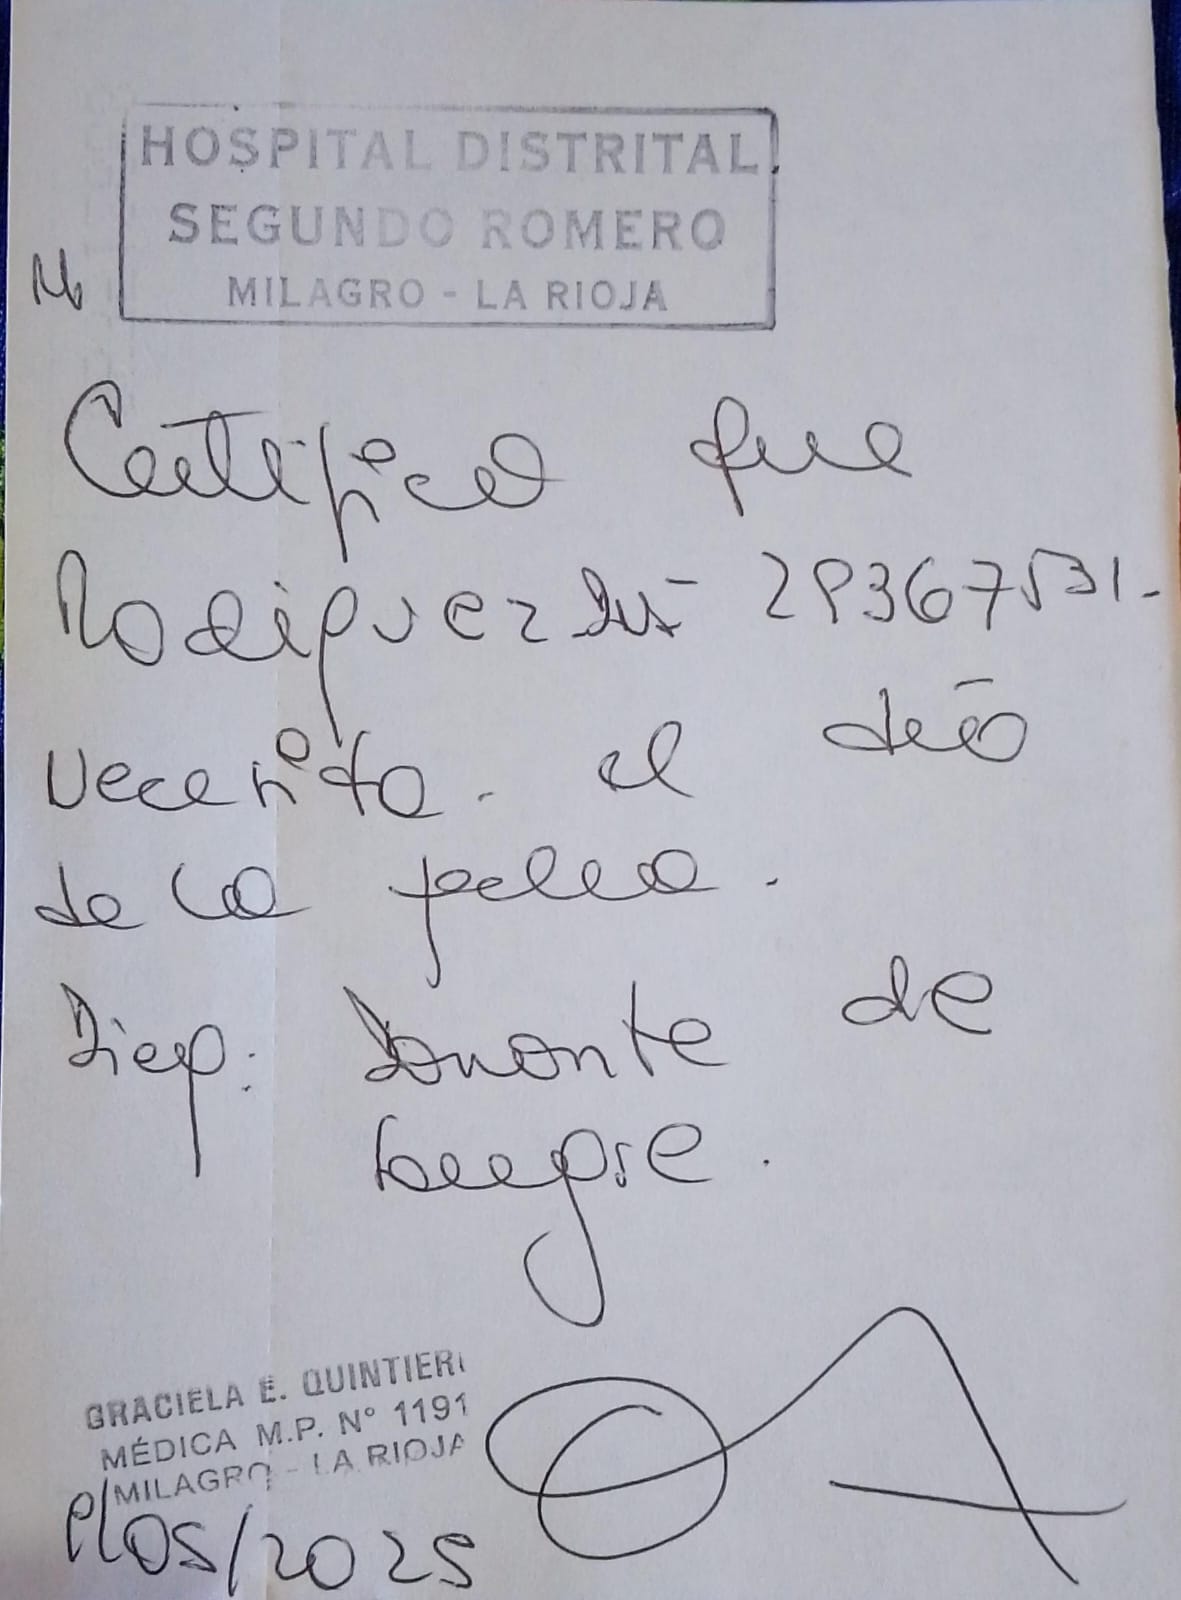 HOSPITAL DISTRITAL
SEGUNDO ROMERO
MILAGRO - LA RIOJA
Certifico que
Rodriguez Luis 29367531.
necesita. el día
de la fecha.
Diag: Donante de
Sangre.
GRACIELA E. QUINTIERI
MÉDICA M.P. N° 1191
MILAGRO - LA RIOJA
/05/2025